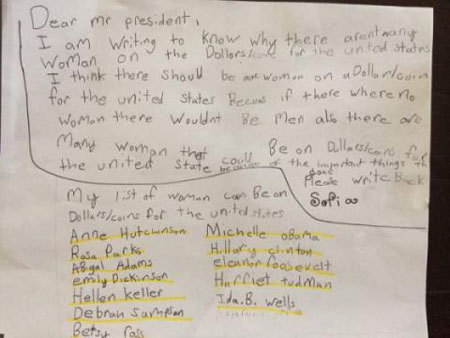 Dear Mr president,
I am writing to know why there arent many
woman on the Dollors/coins for the united states
I think there should be more woman on a Dollor/coin
for the united states Becuns if there where no
woman there wouldnt Be men also there are
Many woman that could Be on Dollars/coins for
the united state because of the important things they
Please write Back
Sofia
My list of woman can Be on
Dollers/coins for the united states
Anne Hutchinson
Rosa Parks
Abigal Adams
emily Dickinson
Hellen keller
Debran sampson
Betsy ross
Michelle obama
Hillary clinton
eleanor roosevelt
Harriet tudman
Ida.B. wells